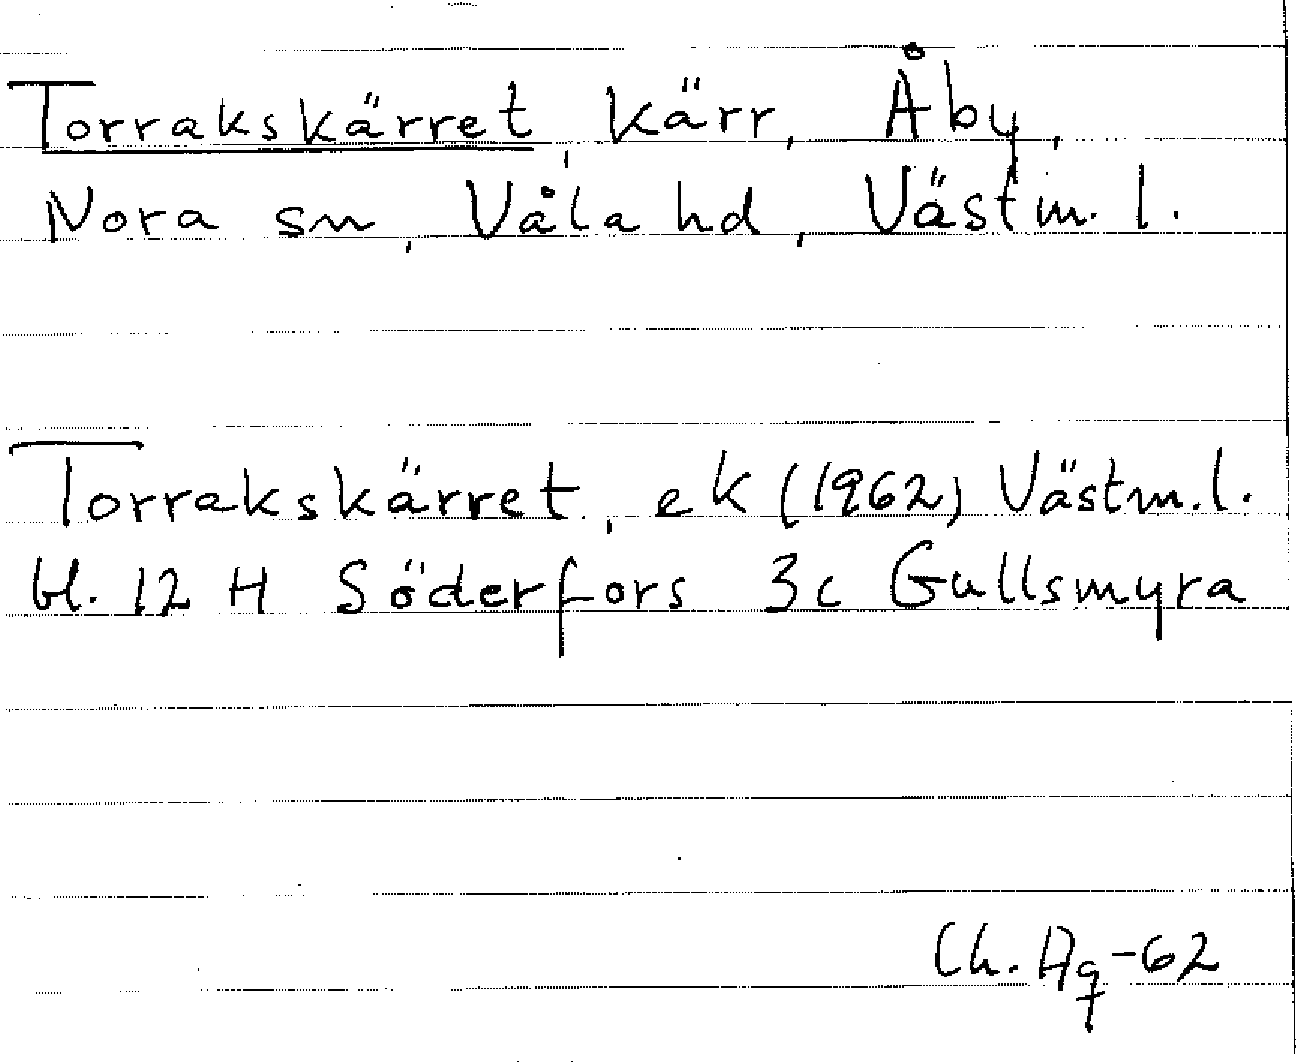 Torrakskärret, kärr, Åby,
Nora sn, Våla hd, Västm. l.
Torrakskärret, ek (1962) Västm. l.
bl. 12 H Söderfors 3c Gullsmyra
Ch. Aq-62